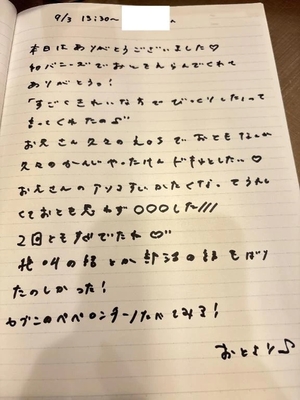 9/3 13:30〜
本日はありがとうございました♡
和バニーズでおとをえらんでくれて
ありがとう。!
「すごくきれいな方でびっくりした」って
言ってくれたの♪
お兄さん久々のえっちでおともなんか
久々のかんじやったけんドキドキした♡
お兄さんのアソコすごいかたくなってうれし
くておとも思わず○○○した///
2回ともすごでたね♡
の話とか部活の話もばり
たのしかった!
セブンのペペロンチーノたべてみる!
おとより♪